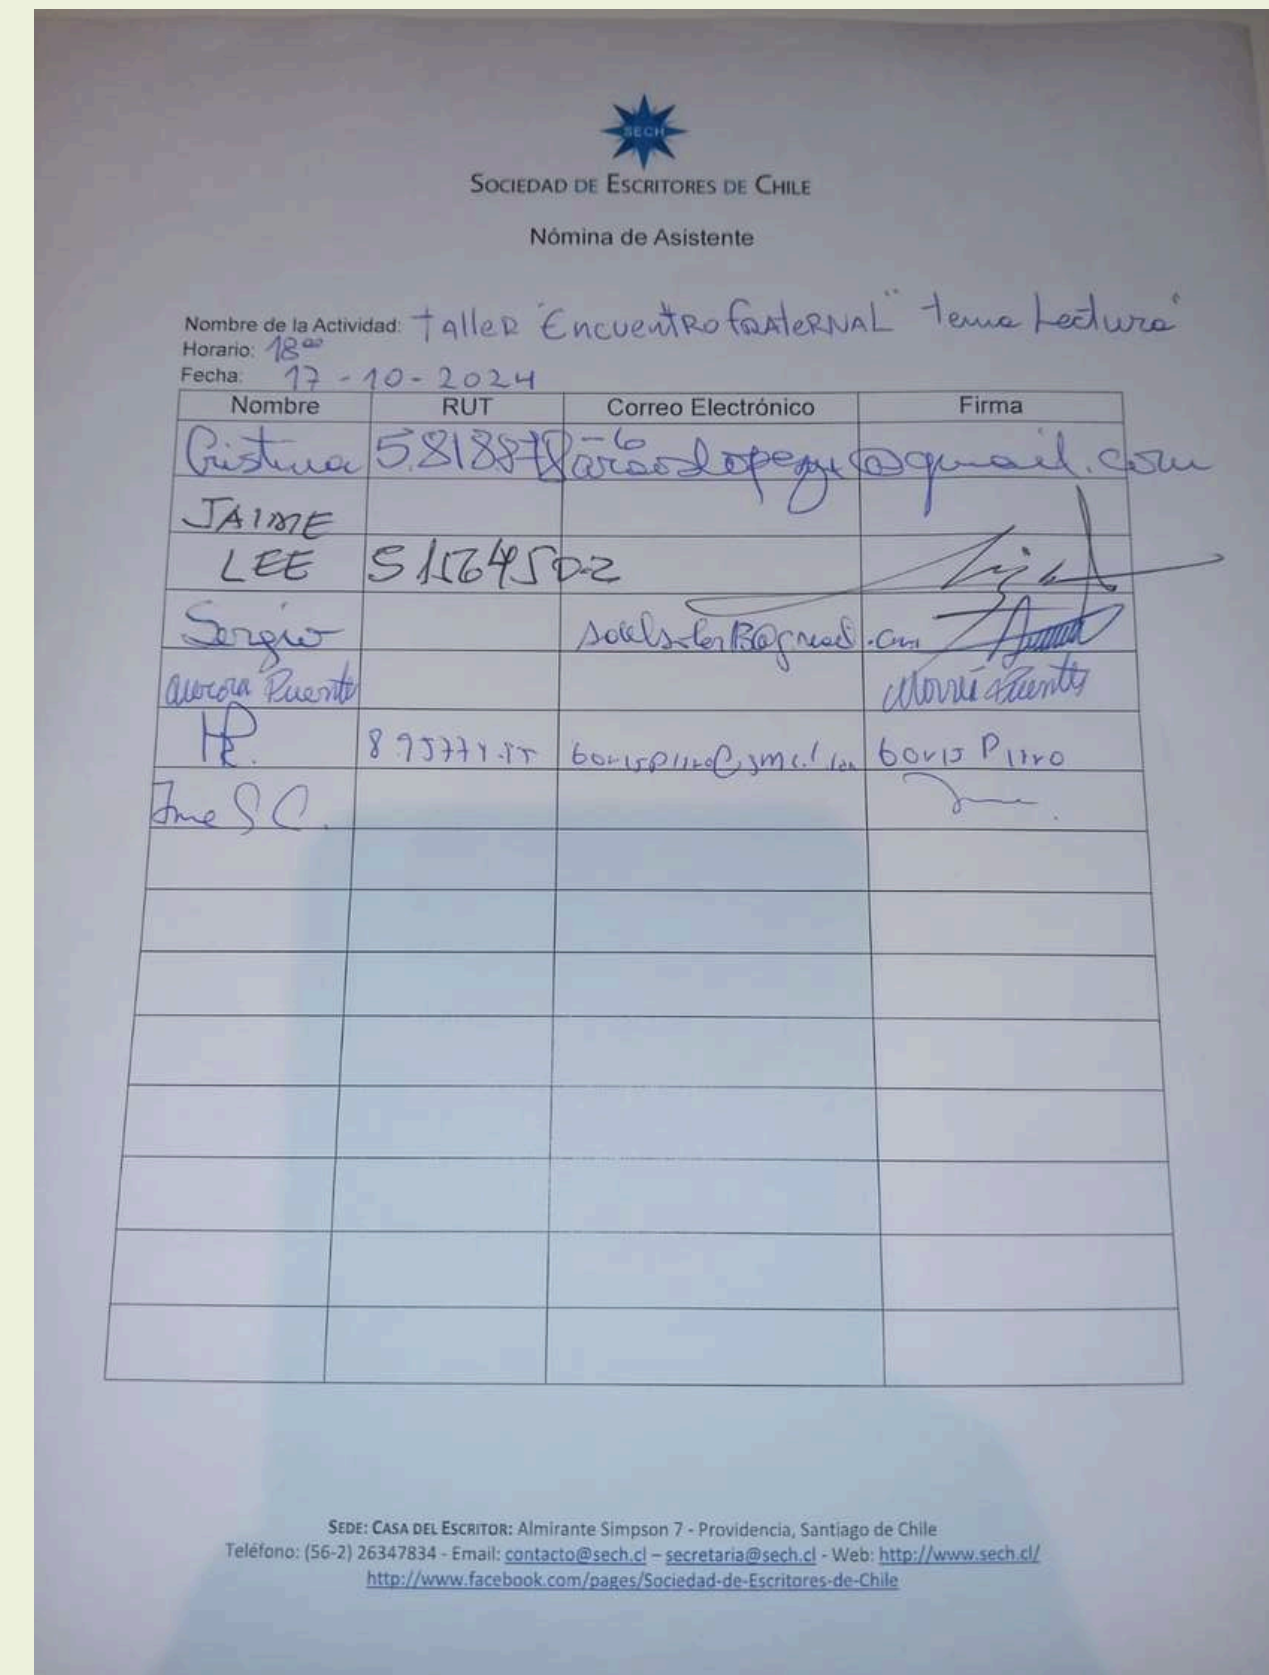 SECH
SOCIEDAD DE ESCRITORES DE CHILE
Nómina de Asistente
Nombre de la Actividad: Taller "Encuentro fraterNAL" "tema Lectura"
Horario: 18⁰⁰
Fecha: 17-10-2024
Nombre RUT Correo Electrónico Firma
Cristina @gmail.com
JAIME
LEE
Sergio
Aurora Puente
Boris Pirro
SEDE: CASA DEL ESCRITOR: Almirante Simpson 7 - Providencia, Santiago de Chile
Teléfono: (56-2) 26347834 - Email: contacto@sech.cl – secretaria@sech.cl - Web: http://www.sech.cl/
http://www.facebook.com/pages/Sociedad-de-Escritores-de-Chile